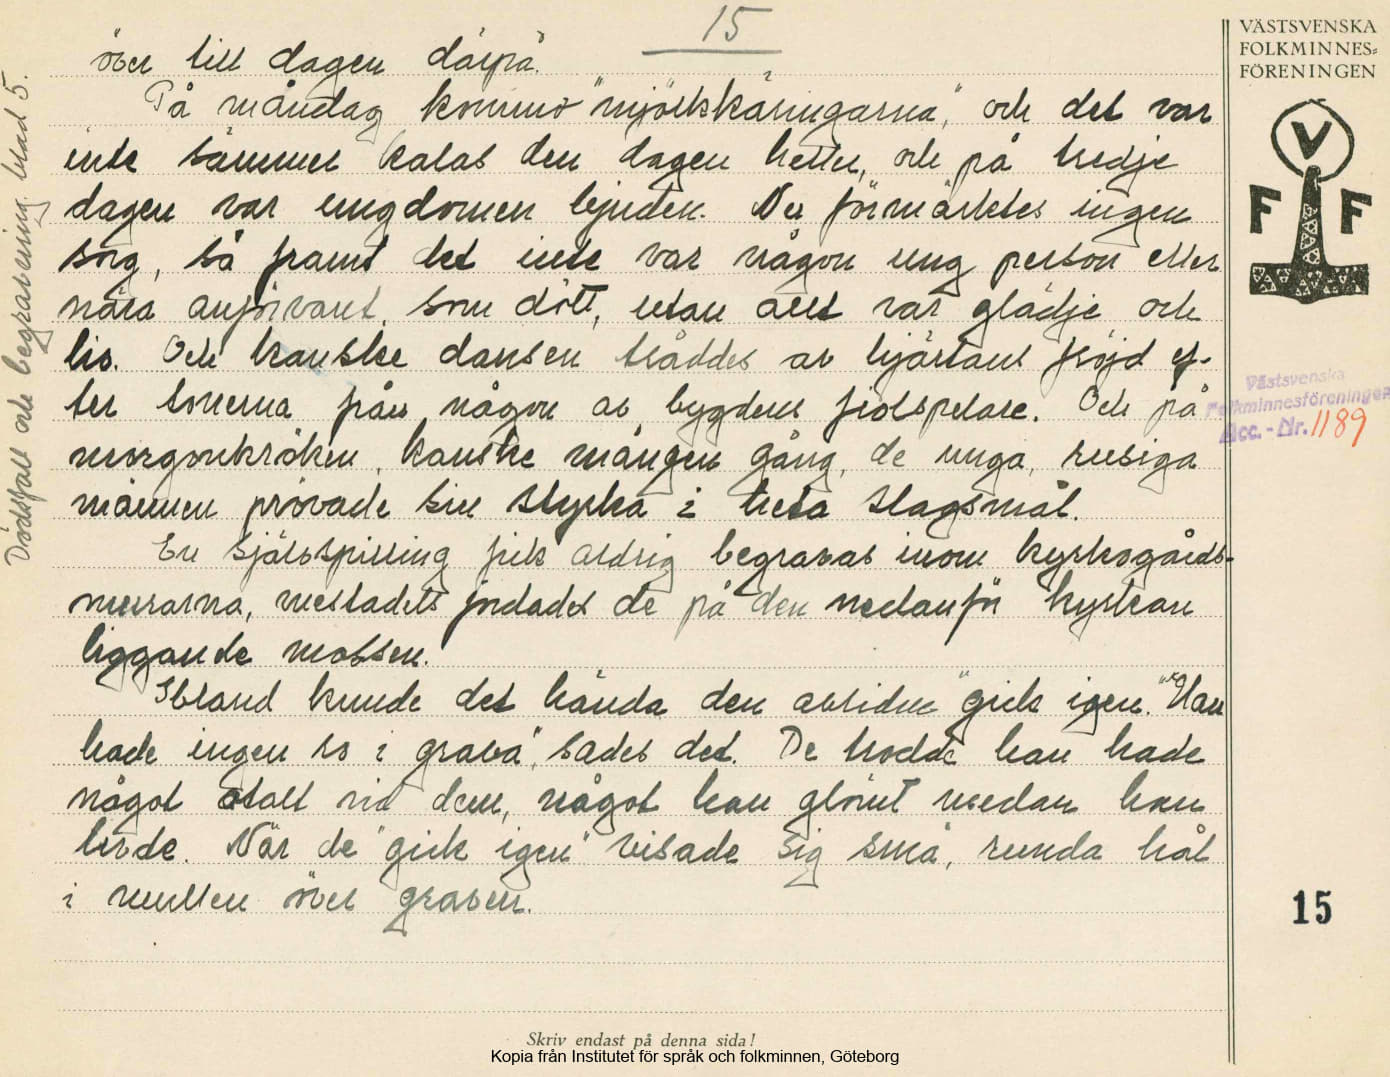 15
över till dagen därpå.
På måndag kommo "mjölkkäringarna", och det var
inte sämmer kalas den dagen heller, och på tredje
dagen var ungdomen bjuden. Nu förmärktes ingen
sorg, så framt det inte var någon ung person eller
nära anförvant, som dött, utan allt var glädje och
liv. Och kanske dansen tråddes av hjärtans fröjd ef-
ter tonerna från någon av bygdens fiolspelare. Och på
morgonkröken, kanske mången gång, de unga, rusiga
männen prövade sin styrka i heta slagsmål.
En självspilling fick aldrig begravas inom kyrkogårds-
murarna, mestadels jordades de på den nedanför kyrkan
liggande mossen.
Ibland kunde det hända den avlidne "gick igen." "Han
hade ingen ro i grava", sades det. De trodde han hade
något otalt vid dem, något han glömt medan han
levde. När de "gick igen" visade sig små, runda hål
i mullen över graven.
Dödsfall och begravning blad 5.
VÄSTSVENSKA
FOLKMINNES=
FÖRENINGEN
V
F F
Västsvenska
Folkminnesföreningen
Acc.-Nr. 1189
15
Skriv endast på denna sida!
Kopia från Institutet för språk och folkminnen, Göteborg